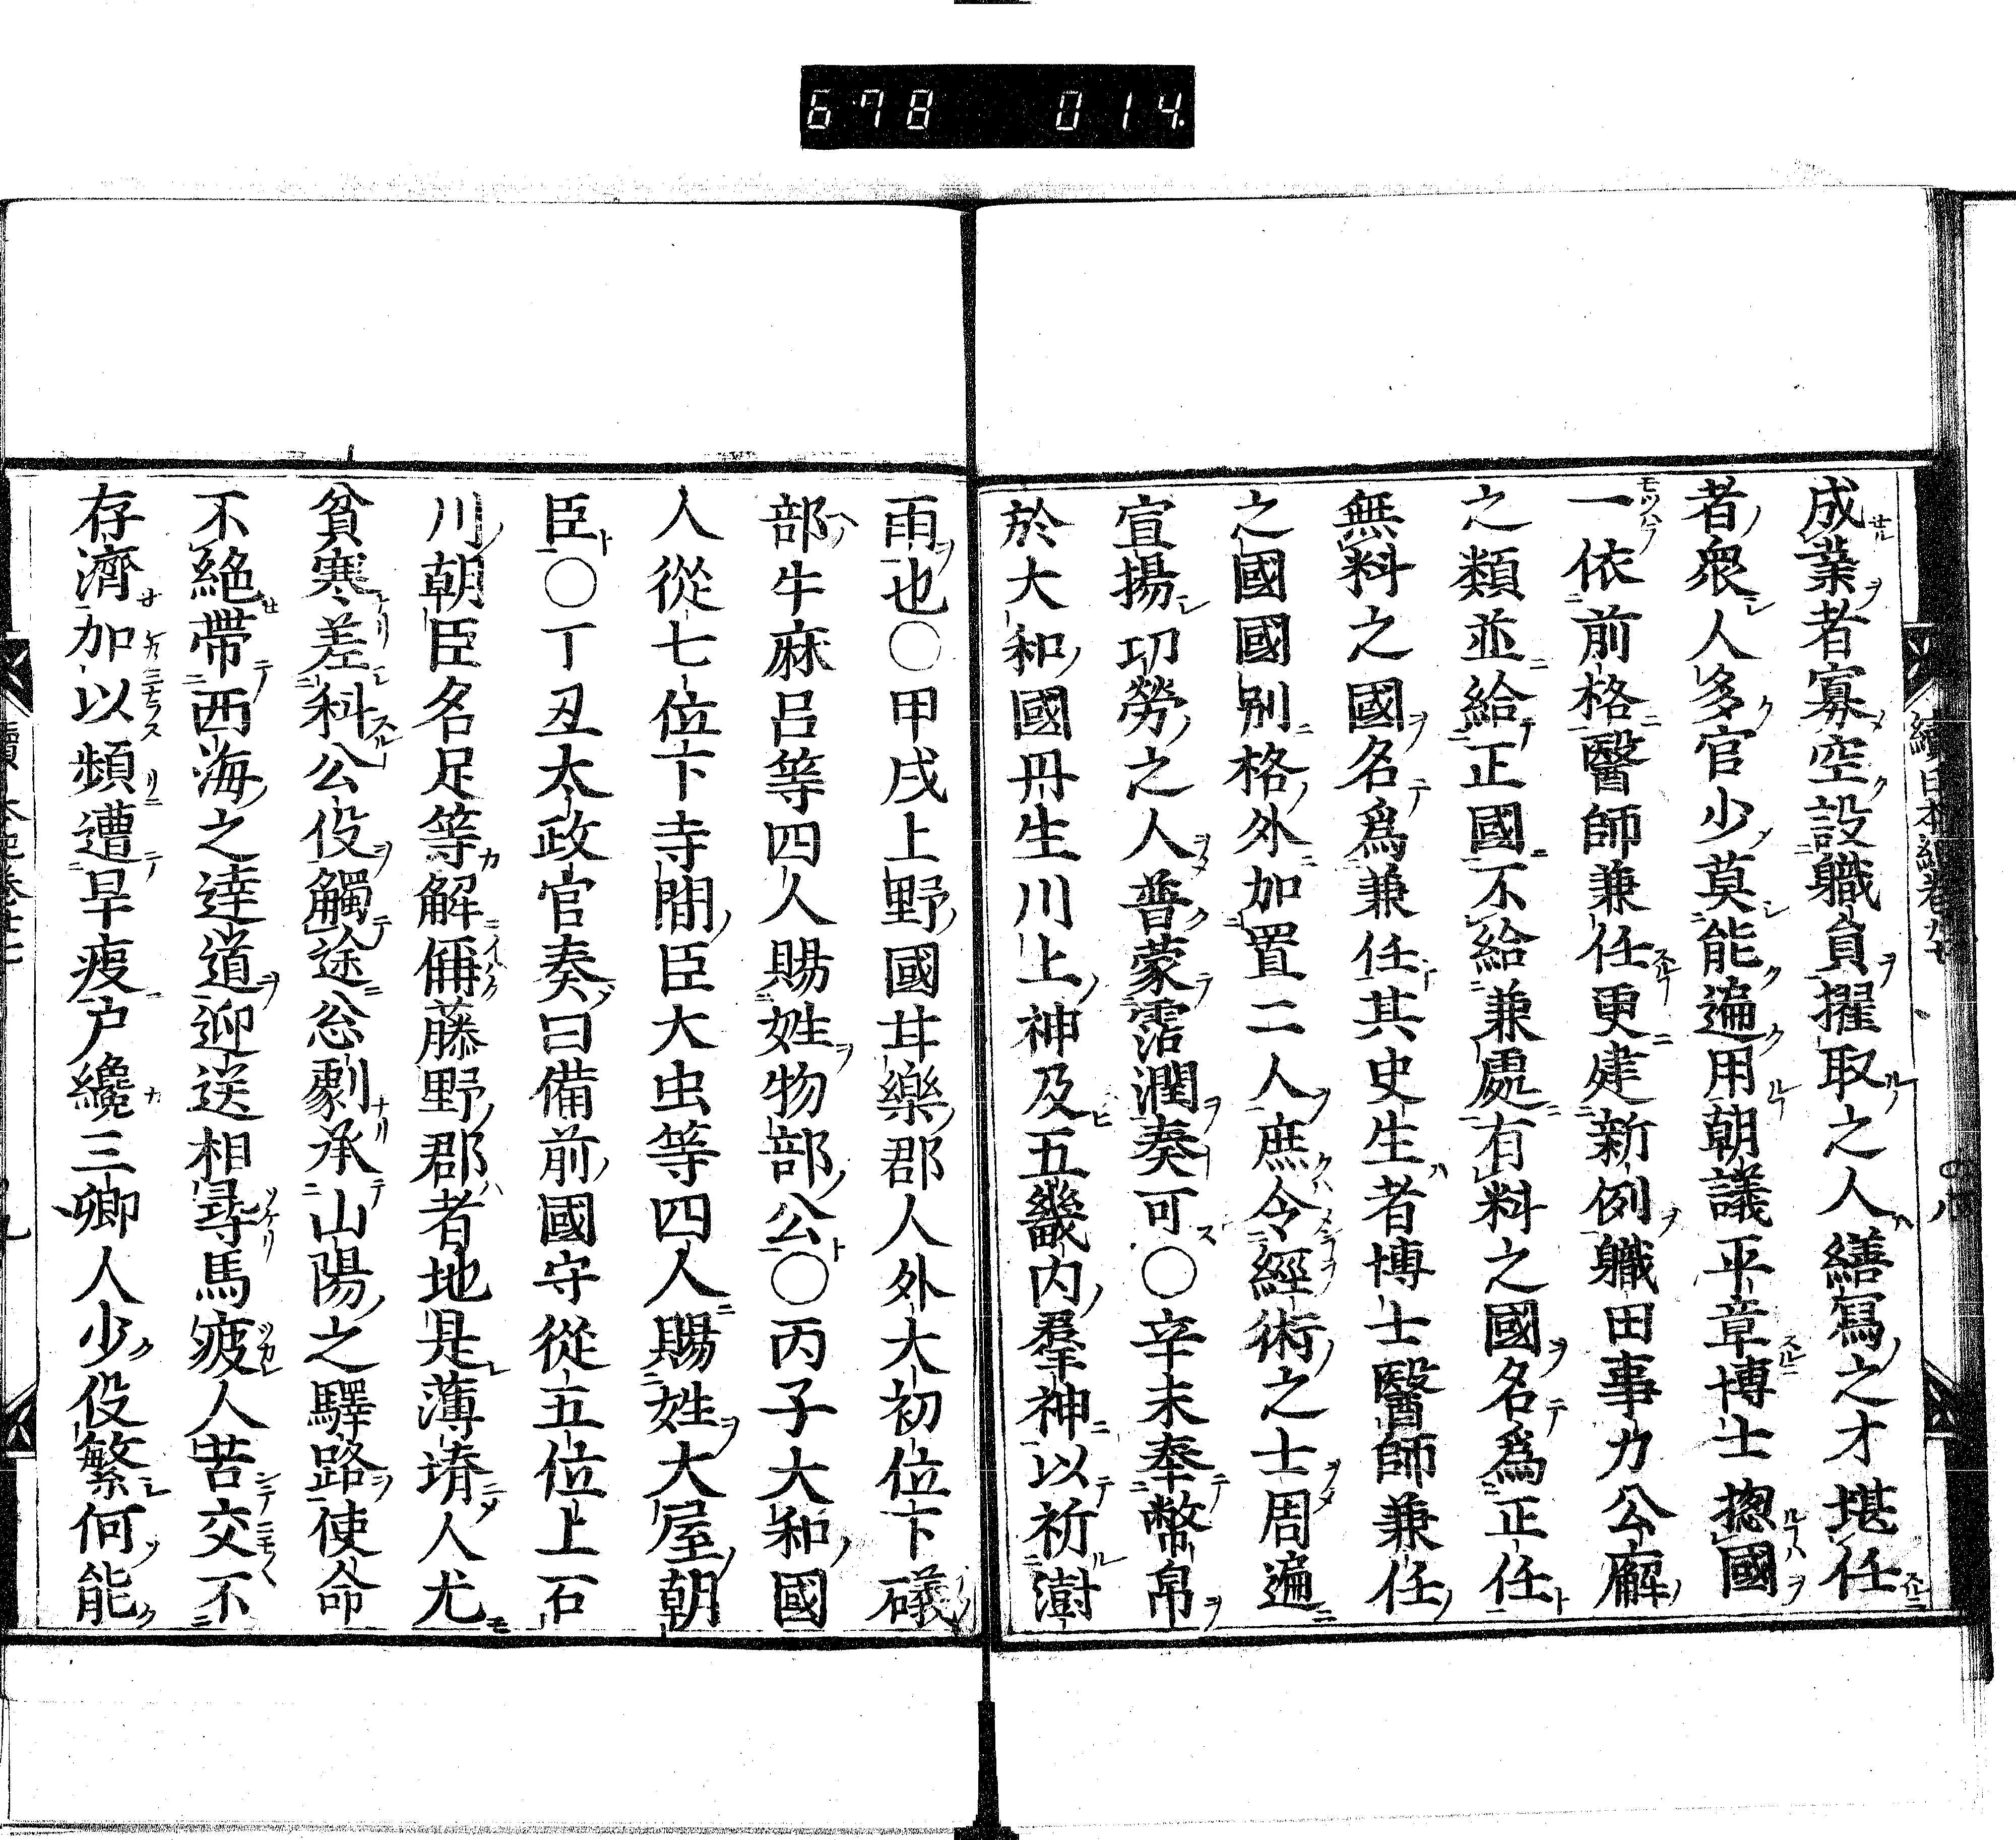 678 014
成業者寡空設職員擢取之人繕寫之才堪任
者衆人多官少莫能遍用朝議平章博士揔國
一依前格醫師兼任更建新例職田事力公廨
之類並給正國不給兼處有料之國名爲正任
無料之國名爲兼任其史生者博士醫師兼任
之國國別格外加置二人庶令經術之士周遍
宣揚功勞之人普蒙霑潤奏可〇辛未奉幣帛
於大和國丹生川上神及五畿内羣神以祈澍
雨也〇甲戌上野國甘樂郡人外大初位下礒
部牛麻呂等四人賜姓物部公〇丙子大和國
人從七位下寺間臣大虫等四人賜姓大屋朝
臣〇丁丑太政官奏曰備前國守從五位上石
川朝臣名足等解偁藤野郡者地是薄塉人尤
貧寒差科公役觸途忩劇承山陽之驛路使命
不絶帶西海之達道迎送相尋馬疲人苦交不
存濟加以頻遭旱疫戸纔三卿人少役繁何能